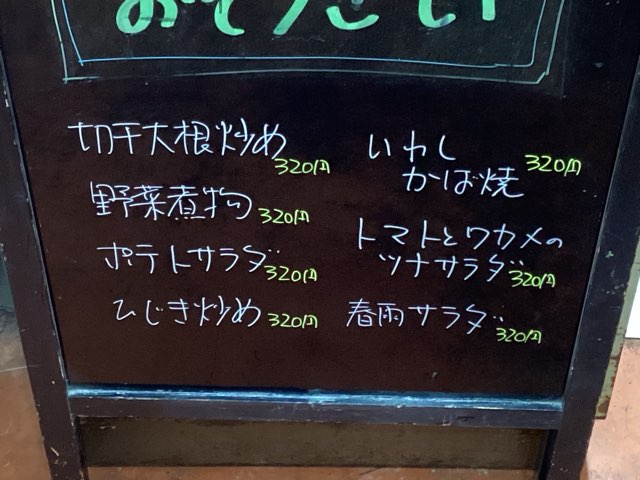 おそうざい
切干大根炒め
320円
野菜煮物 320円
ポテトサラダ 320円
ひじき炒め 320円
いわし
かば焼 320円
トマトとワカメの
ツナサラダ 320円
春雨サラダ
320円